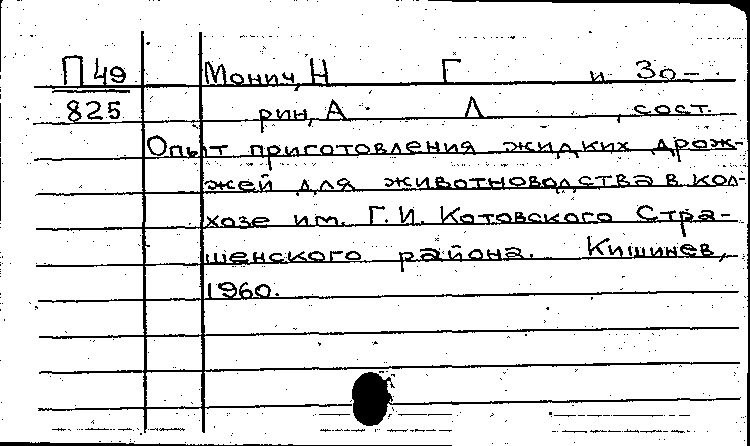 П 49 Монич, Н Г и Зо-
825 рин, А Л , сост.
Опыт приготовления жидких дрож-
жей для животноводства в кол-
хозе им. Г.И. Котовского Стра-
шенского района. Кишинев,
1960.